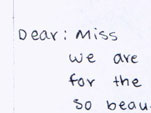 Dear: Miss
we are
for the
so beau